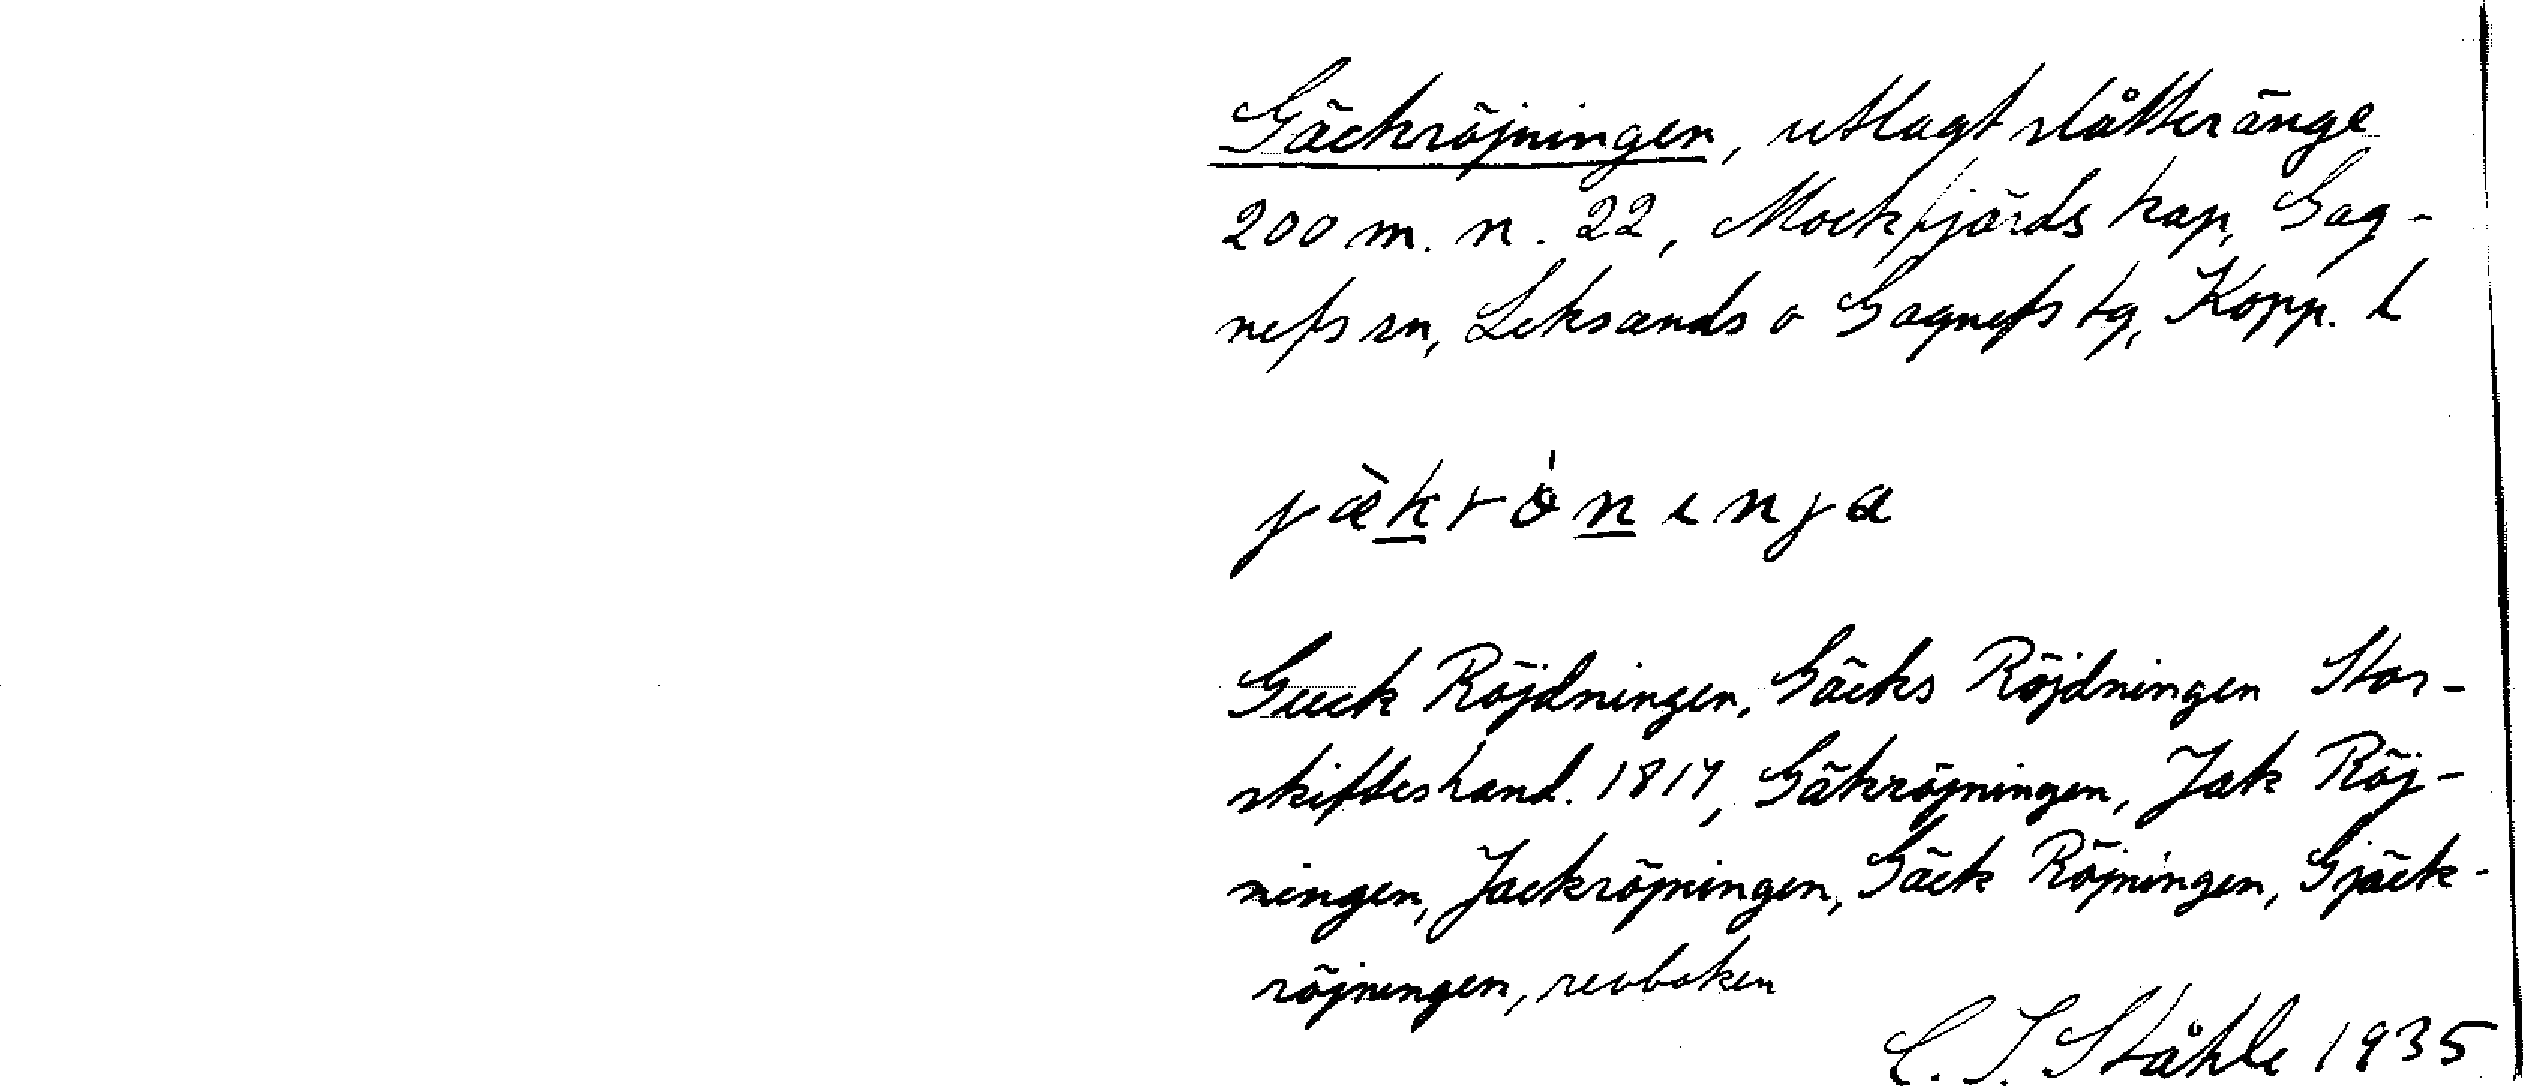 Gäckröjningen, utlagt slåtteränge
200 m. n. 22, Mockfjärds kap, Gag-
nefs sn, Leksands o Gagnefs tg, Kopp. l
jæ̀krö́nınja
Gieck Röjdningen, Gäcks Röjdningen Stor-
skifteshand. 1817, Gäkröjningen, Jak Röj-
ningen, Jackröjningen, Gäck Röjningen, Gjäck-
röjningen, revboken
C. I. Ståhle 1935